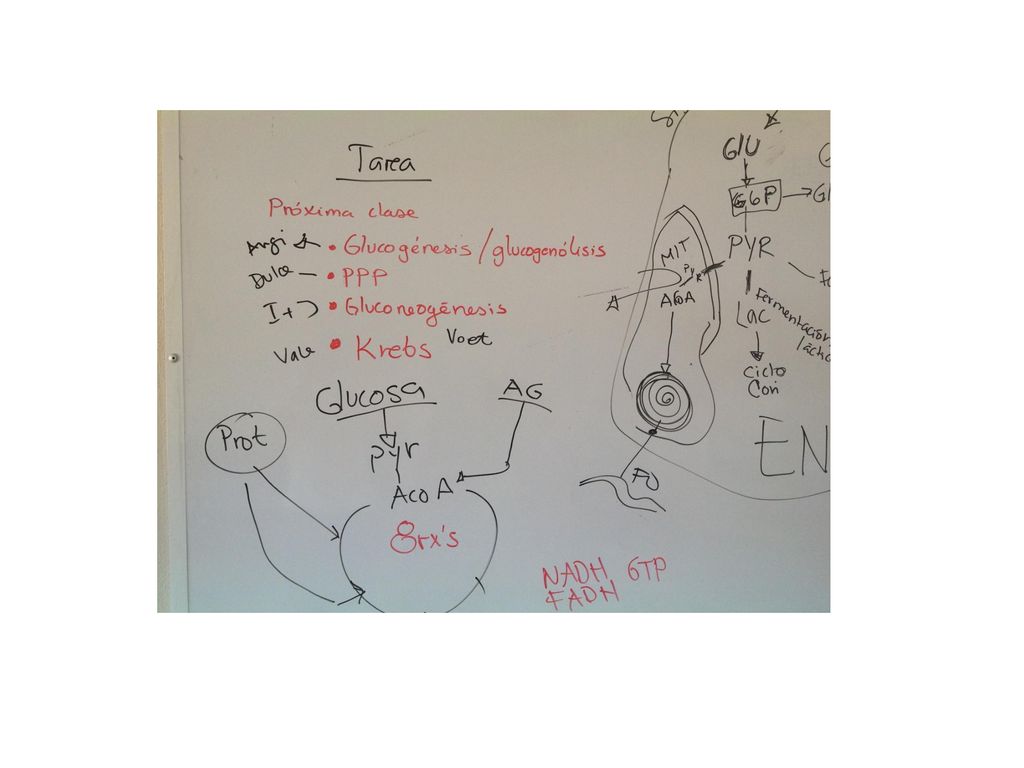 Tarea
Próxima clase
Angi • Glucogénesis/glucogenólisis
Dulce • PPP
• Gluconeogénesis
Vale • Krebs Voet
Glucosa
AG
Prot
Pyr
AcoA
8rx's
NADH GTP
FADH
GlU
G6P
PYR
MIT
Pyr
ACoA
Lac
Fermentación
Ciclo
Cori
FO
EN